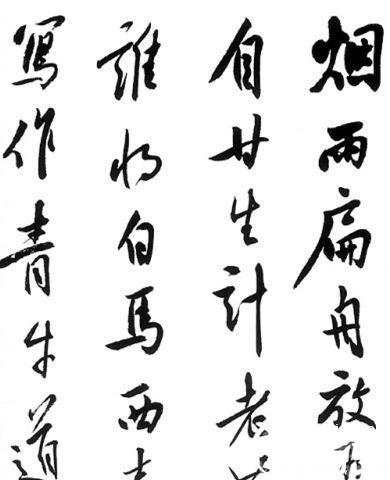 烟雨扁舟放
自甘生計老
誰将白馬西
寫作青牛道